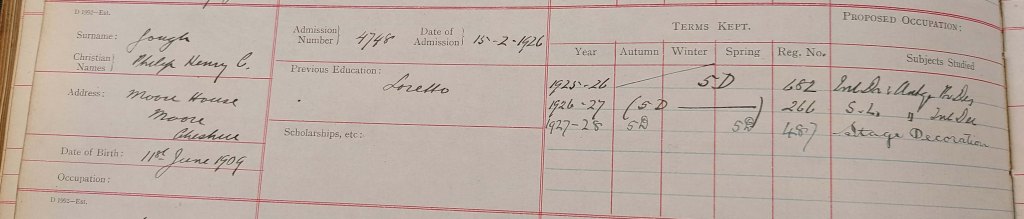 D 1992—Est.
Surname: Gough
Christian Names Philip Henry C.
Address: Moore House
Moore
Cheshire
Date of Birth: 11th June 1909
Occupation:
Admission Number 4748 Date of Admission 15-2-1926
Previous Education:
Loretto
Scholarships, etc:
TERMS KEPT.
Year Autumn Winter Spring Reg. No.
1925-26 5D 682
1926-27 (5D ——— ) 266
1927-28 5D 5D 487
PROPOSED OCCUPATION:
Subjects Studied
Int Des
S.L. " Int Dec
Stage Decoration
D 1992—Est.